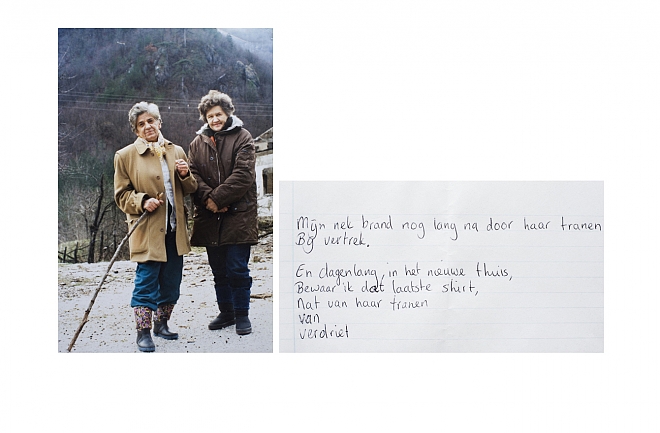 Mijn nek brand nog lang na door haar tranen
Bij vertrek.
En dagenlang, in het nieuwe thuis,
Bewaar ik dat laatste shirt,
Nat van haar tranen
van
verdriet